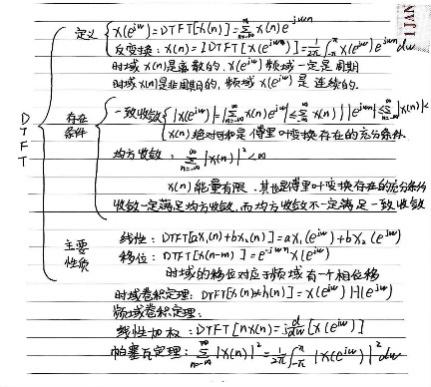 1 JAN
DTFT
定义 X(e^{jω})=DTFT[x(n)]=Σ_{n=-∞}^{∞} x(n) e^{-jωn}
反变换: x(n)=IDTFT[X(e^{jω})]=1/2π ∫_{-π}^{π} X(e^{jω}) e^{jωn} dω
时域 x(n)是离散的, X(e^{jω})频域一定是周期
时域 x(n)是非周期的, 频域 X(e^{jω}) 是 连续的.
存在条件 一致收敛 |X(e^{jω})|=|Σ_{n=-∞}^{∞} x(n) e^{jωn}|≤Σ_{n=-∞}^{∞} |x(n)||e^{jωn}|≤Σ_{n=-∞}^{∞}|x(n)|<
x(n)绝对可和是 傅里叶变换存在的充分条件
均方收敛: Σ_{n=-∞}^{∞} |x(n)|²<∞
x(n)能量有限. 其也是傅里叶变换存在的充分条件
收敛一定满足均方收敛, 而均方收敛不一定满足一致收敛
主要性质 线性: DTFT[ax₁(n)+bx₂(n)]=aX₁(e^{jω})+bX₂(e^{jω})
移位: DTFT[x(n-m)]=e^{-jωm} X(e^{jω})
时域的移位对应于频域有一个相位移
时域卷积定理: DTFT[x(n)*h(n)]=X(e^{jω})H(e^{jω})
频域卷积定理:
线性加权: DTFT[nx(n)=j d/dω[X(e^{jω})]
帕塞瓦定理: Σ_{n=-∞}^{∞} |x(n)|²=1/2π ∫_{-π}^{π} |X(e^{jω})|² dω